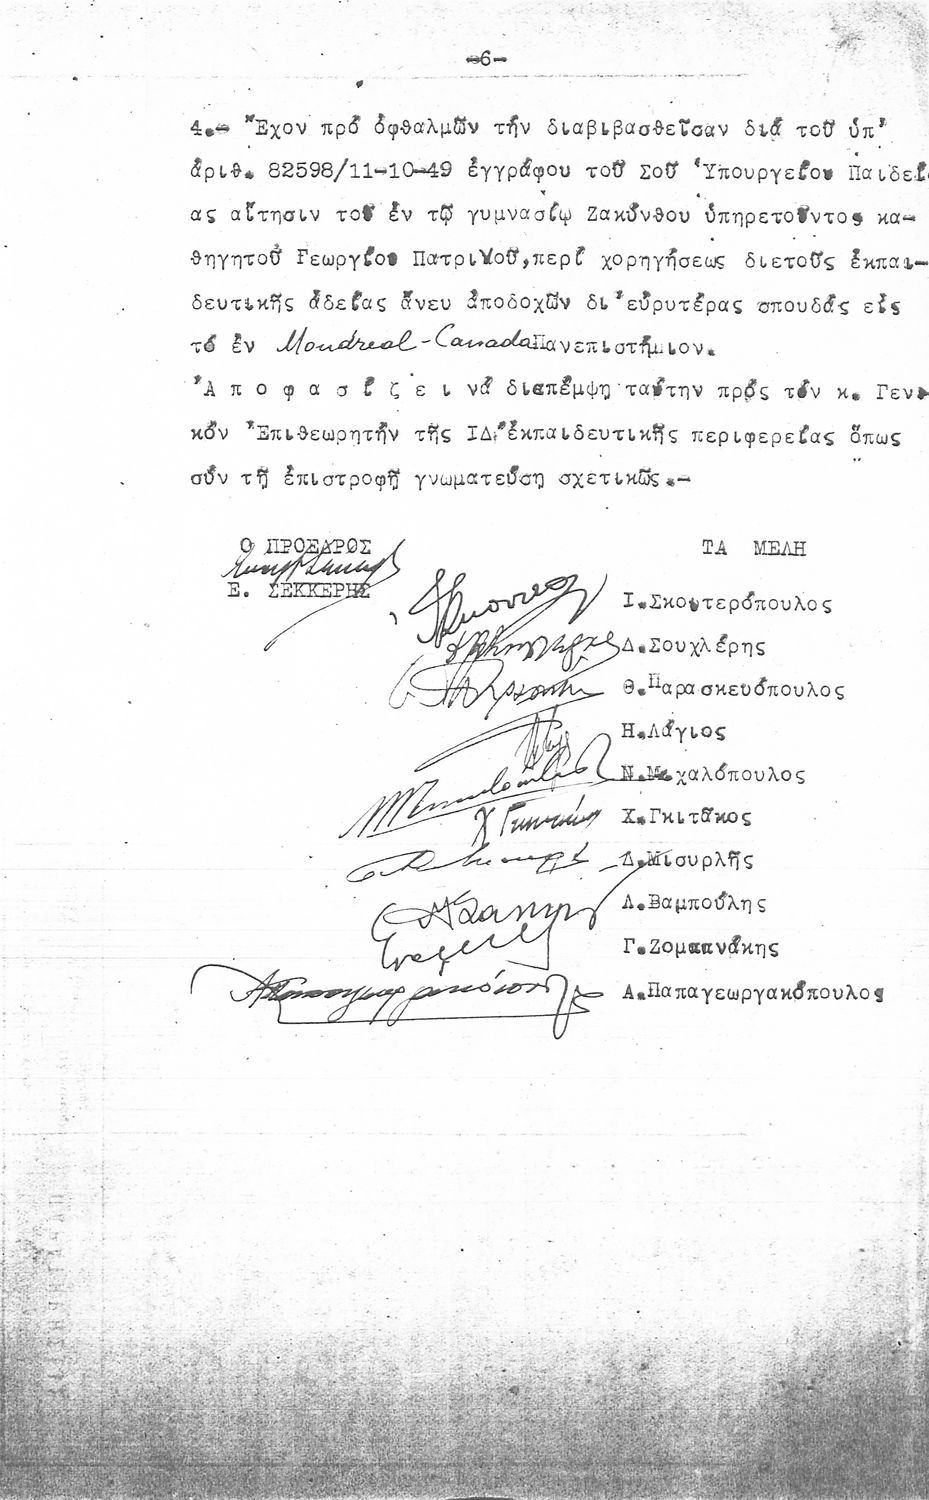 -6-
4.- Ἔχον πρό ὀφθαλμῶν τήν διαβιβασθεῖσαν διά τοῦ ὑπ'
ἀριθ. 82598/11-10-49 ἐγγράφου τοῦ Σοῦ Ὑπουργείου Παιδεί
ας αἴτησιν τοῦ ἐν τῷ γυμνασίῳ Ζακύνθου ὑπηρετοῦντος κα-
θηγητοῦ Γεωργίου Πατρινοῦ,περί χορηγήσεως διετοῦς ἐκπαι-
δευτικῆς ἀδείας ἄνευ ἀποδοχῶν δι'εὐρυτέρας σπουδάς εἰς
τό ἐν Moudreal-Canada Πανεπιστήμιον.
Ἀ π ο φ α σ ί ζ ε ι νά διαπέμψῃ ταύτην πρός τόν κ. Γενι
κόν Ἐπιθεωρητήν τῆς ΙΔ'ἐκπαιδευτικῆς περιφερείας ὅπως
σύν τῇ ἐπιστροφῇ γνωματεύσῃ σχετικῶς.-
Ο ΠΡΟΕΔΡΟΣ ΤΑ ΜΕΛΗ
Ε. ΣΕΚΚΕΡΗΣ
Ι.Σκουτερόπουλος
Δ.Σουχλέρης
Θ.Παρασκευόπουλος
Η.Λάγιος
Ν.Μιχαλόπουλος
Χ.Γκιτάκος
Δ.Μισυρλῆς
Λ.Βαμπούλης
Γ.Ζομπανάκης
Α.Παπαγεωργακόπουλος